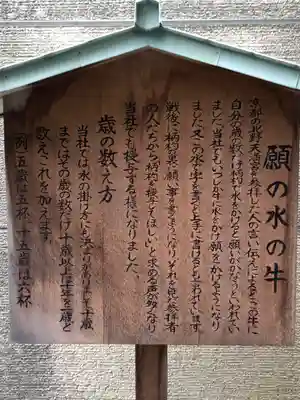 願の水の牛
京都の北野天満宮を参拝した人の言い伝えによるとこの牛に
自分の歳の数だけ柄杓で水をかけると願いがかなうといわれてい
ました当社でもいつしか牛に水をかけ願をかけるようになり
ました又この水で字を書くと上手に書けるとも言われています
戦後に柄杓の裏へ願い事を書くようになりそれを見た参拝者
の人たちから柄杓を授与してほしいと求める声が数くなり
当社でも授与する様になりました。
歳の数え方
当社では水の掛け方にも決まりがあります十歳
まではその歳の数だけ十歳以上は十を一度と
数えこれを加えます。
例 五歳は五杯 十五歳は六杯